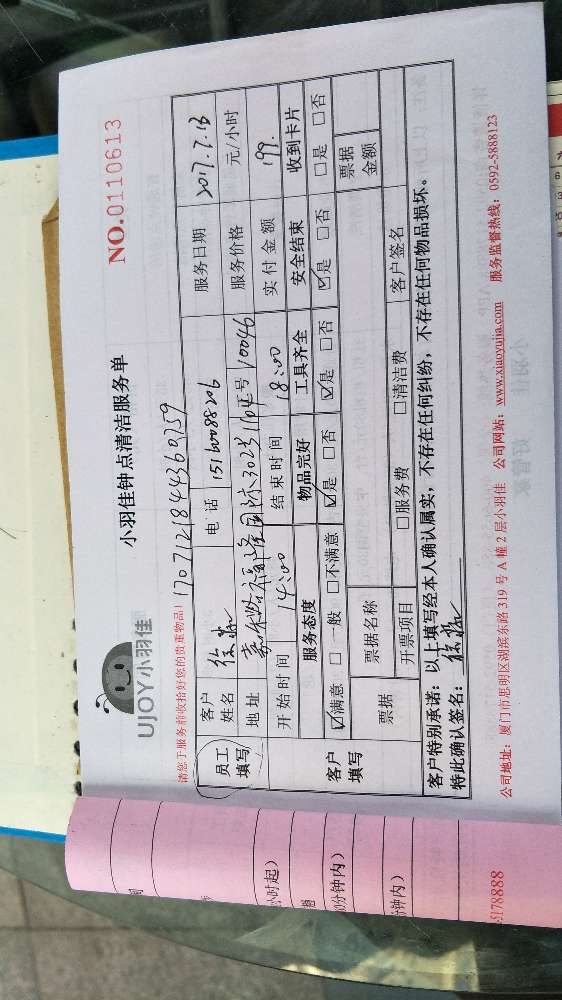 UJOY小羽佳
小羽佳钟点清洁服务单
NO.0110613
请您于服务前收拾好您的贵重物品!
1707121844360959
员工填写
客户姓名
电话 15160088206
服务日期 2017.7.13
地址
国际302
证号 10046
服务价格 元/小时
开始时间 14:00
结束时间 18:00
实付金额 199.
客户填写
服务态度 物品完好 工具齐全 安全结束 收到卡片
☑满意 □一般 □不满意 ☑是 □否 ☑是 □否 ☑是 □否 □是 □否
票据 票据名称 票据金额
开票项目 □服务费 □清洁费 客户签名
客户特别承诺:以上填写经本人确认属实,不存在任何纠纷,不存在任何物品损坏。
特此确认签名:
公司地址:厦门市思明区湖滨东路319号A幢2层小羽佳 公司网站:www.xiaoyujia.com 服务监督热线:0592-5888123
小时起)
0分钟内)
分钟内)
5178888